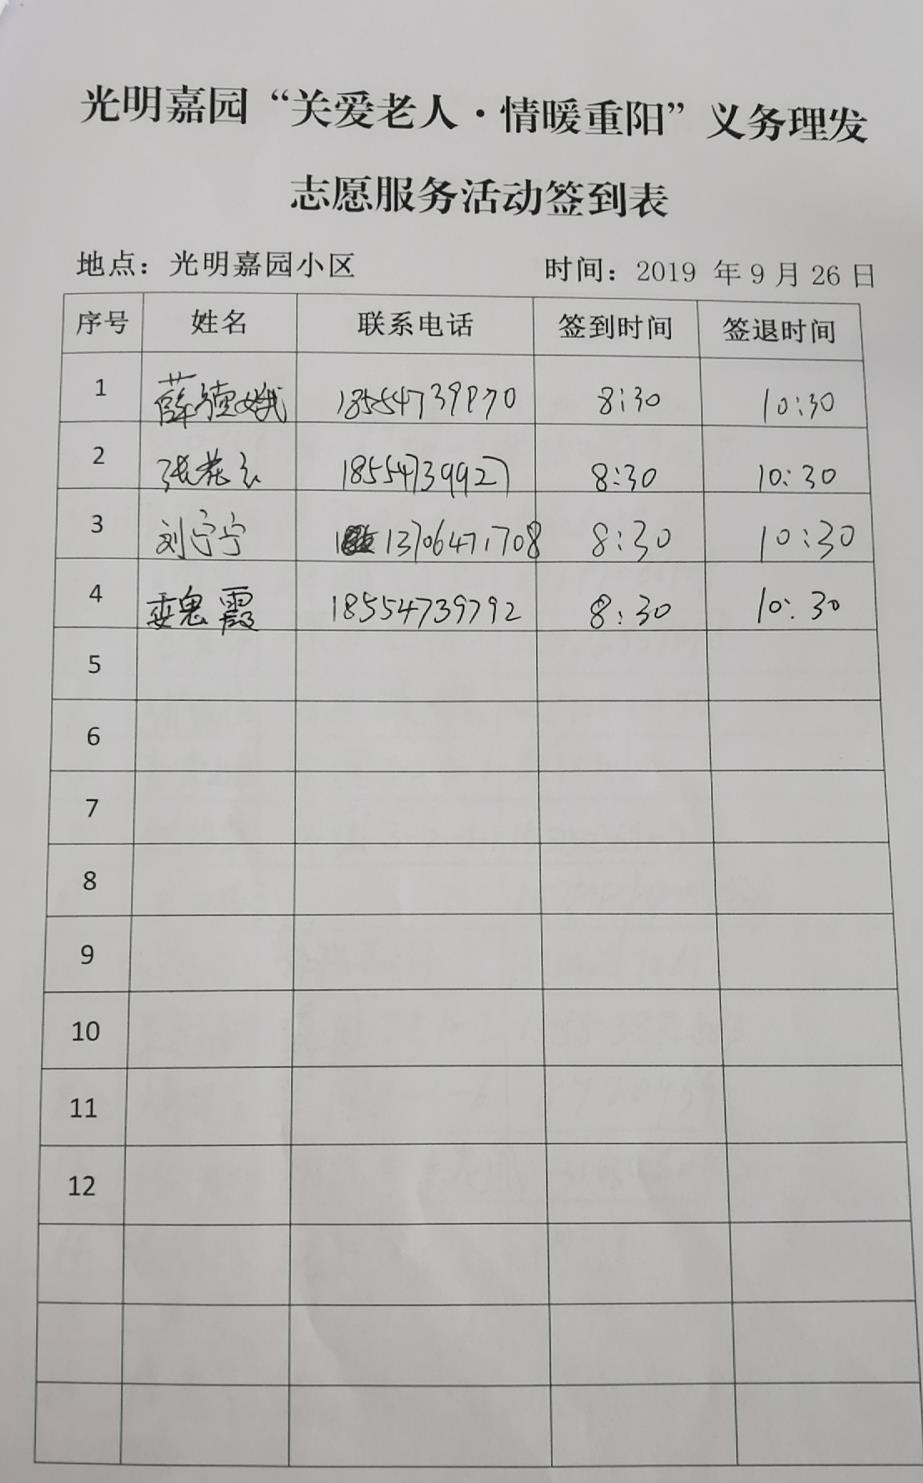 光明嘉园“关爱老人·情暖重阳”义务理发
志愿服务活动签到表
地点：光明嘉园小区 时间：2019 年 9 月 26 日
序号 姓名 联系电话 签到时间 签退时间
1 薛德娥 8:30 10:30
2 张花云 18554739927 8:30 10:30
3 刘宁宁 13706471708 8:30 10:30
4 魏霞 18554739792 8:30 10:30
5
6
7
8
9
10
11
12